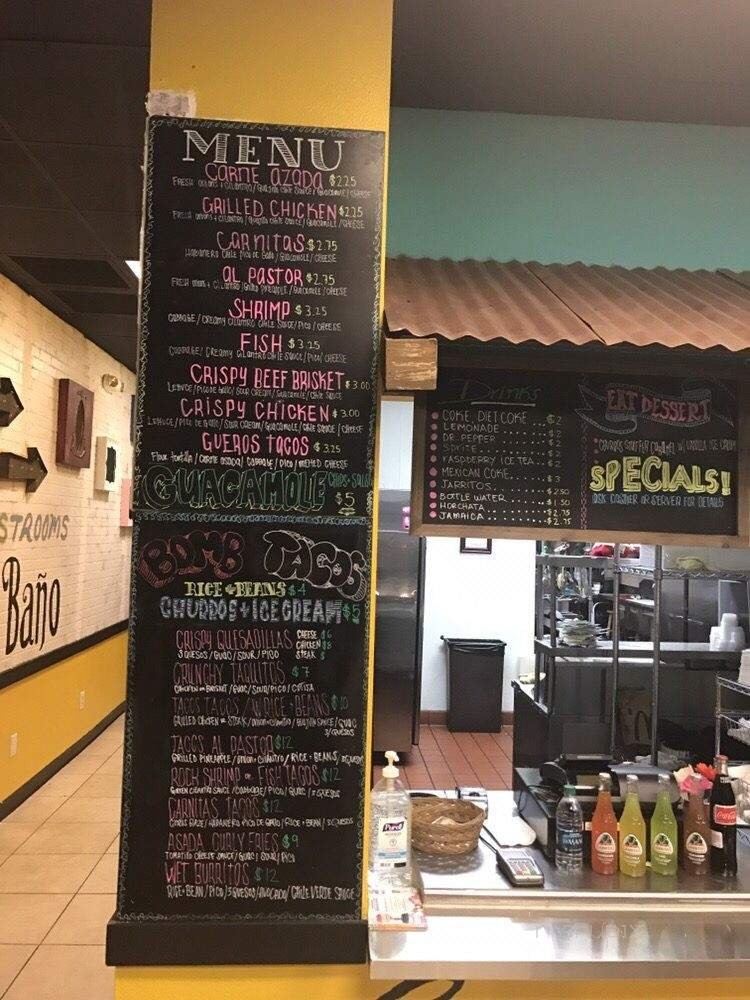 MENU
CARNE AZADA $2.25
FRESH ONIONS + CILANTRO / GUAJILLO CHILE SAUCE / GUACAMOLE / CHEESE
GRILLED CHICKEN $2.25
FRESH ONIONS + CILANTRO / GUAJILLO CHILE SAUCE / GUACAMOLE / CHEESE
CARNITAS $2.75
HABANERO CHILE PICO DE GALLO / GUACAMOLE / CHEESE
AL PASTOR $2.75
FRESH ONION + CILANTRO / GRILLED PINEAPPLE / GUACAMOLE / CHEESE
SHRIMP $3.25
CABBAGE / CREAMY CILANTRO CHILE SAUCE / PICO / CHEESE
FISH $3.25
CABBAGE / CREAMY CILANTRO CHILE SAUCE / PICO / CHEESE
CRISPY BEEF BRISKET $3.00
LETTUCE / PICO DE GALLO / SOUR CREAM / GUACAMOLE / CHILE SAUCE
CRISPY CHICKEN $3.00
LETTUCE / PICO DE GALLO / SOUR CREAM / GUACAMOLE / CHILE SAUCE / CHEESE
GUEROS TACOS $3.25
FLOUR TORTILLA / CARNE ASADA / CABBAGE / PICO / MELTED CHEESE
GUACAMOLE CHIPS + SALSA $5
BOMB TACOS
RICE + BEANS $4
CHURROS + ICE CREAM $5
CRISPY QUESADILLAS CHEESE $6
CHICKEN $8
STEAK $
3 QUESOS / GUAC / SOUR / PICO
CRUNCHY TAQUITOS $7
CHICKEN or BRISKET / GUAC / SOUR / PICO / COTIJA
TACOS TACOS / W RICE + BEANS $10
GRILLED CHICKEN or STEAK / ONION + CILANTRO / GUAJILLO SAUCE / GUAC
3 / QUESOS
TACOS AL PASTOR $12
GRILLED PINEAPPLE / ONION + CILANTRO / RICE + BEANS / 3 QUESOS
ROCK SHRIMP or FISH TACOS $12
GREEN CILANTRO SAUCE / CABBAGE / PICO / GUAC / 3 QUESOS
CARNITAS TACOS $12
HABANERO PICO DE GALLO / RICE + BEAN / 3 QUESOS
ASADA CURLY FRIES $9
TOMATILLO CHEESE SAUCE / GUAC / SOUR / PICO
WET BURRITOS $12
RICE + BEAN / PICO / 3 QUESOS / AVOCADO / CHILE VERDE SAUCE
DRINKS
COKE, DIET COKE ... $2
LEMONADE ... $2
DR. PEPPER ... $2
SPRITE ... $2
RASPBERRY ICE TEA .. $2
MEXICAN COKE ... $3
JARRITOS ... $2.50
BOTTLE WATER ... $1.50
HORCHATA ... $2.75
JAMAICA ... $2.75
EAT DESSERT
CHURROS STUFF'FER CARAMEL W/ VANILLA ICE CREAM
SPECIALS!
ASK CASHIER OR SERVER FOR DETAILS
STROOMS
Baño
Purell
Coca-Cola